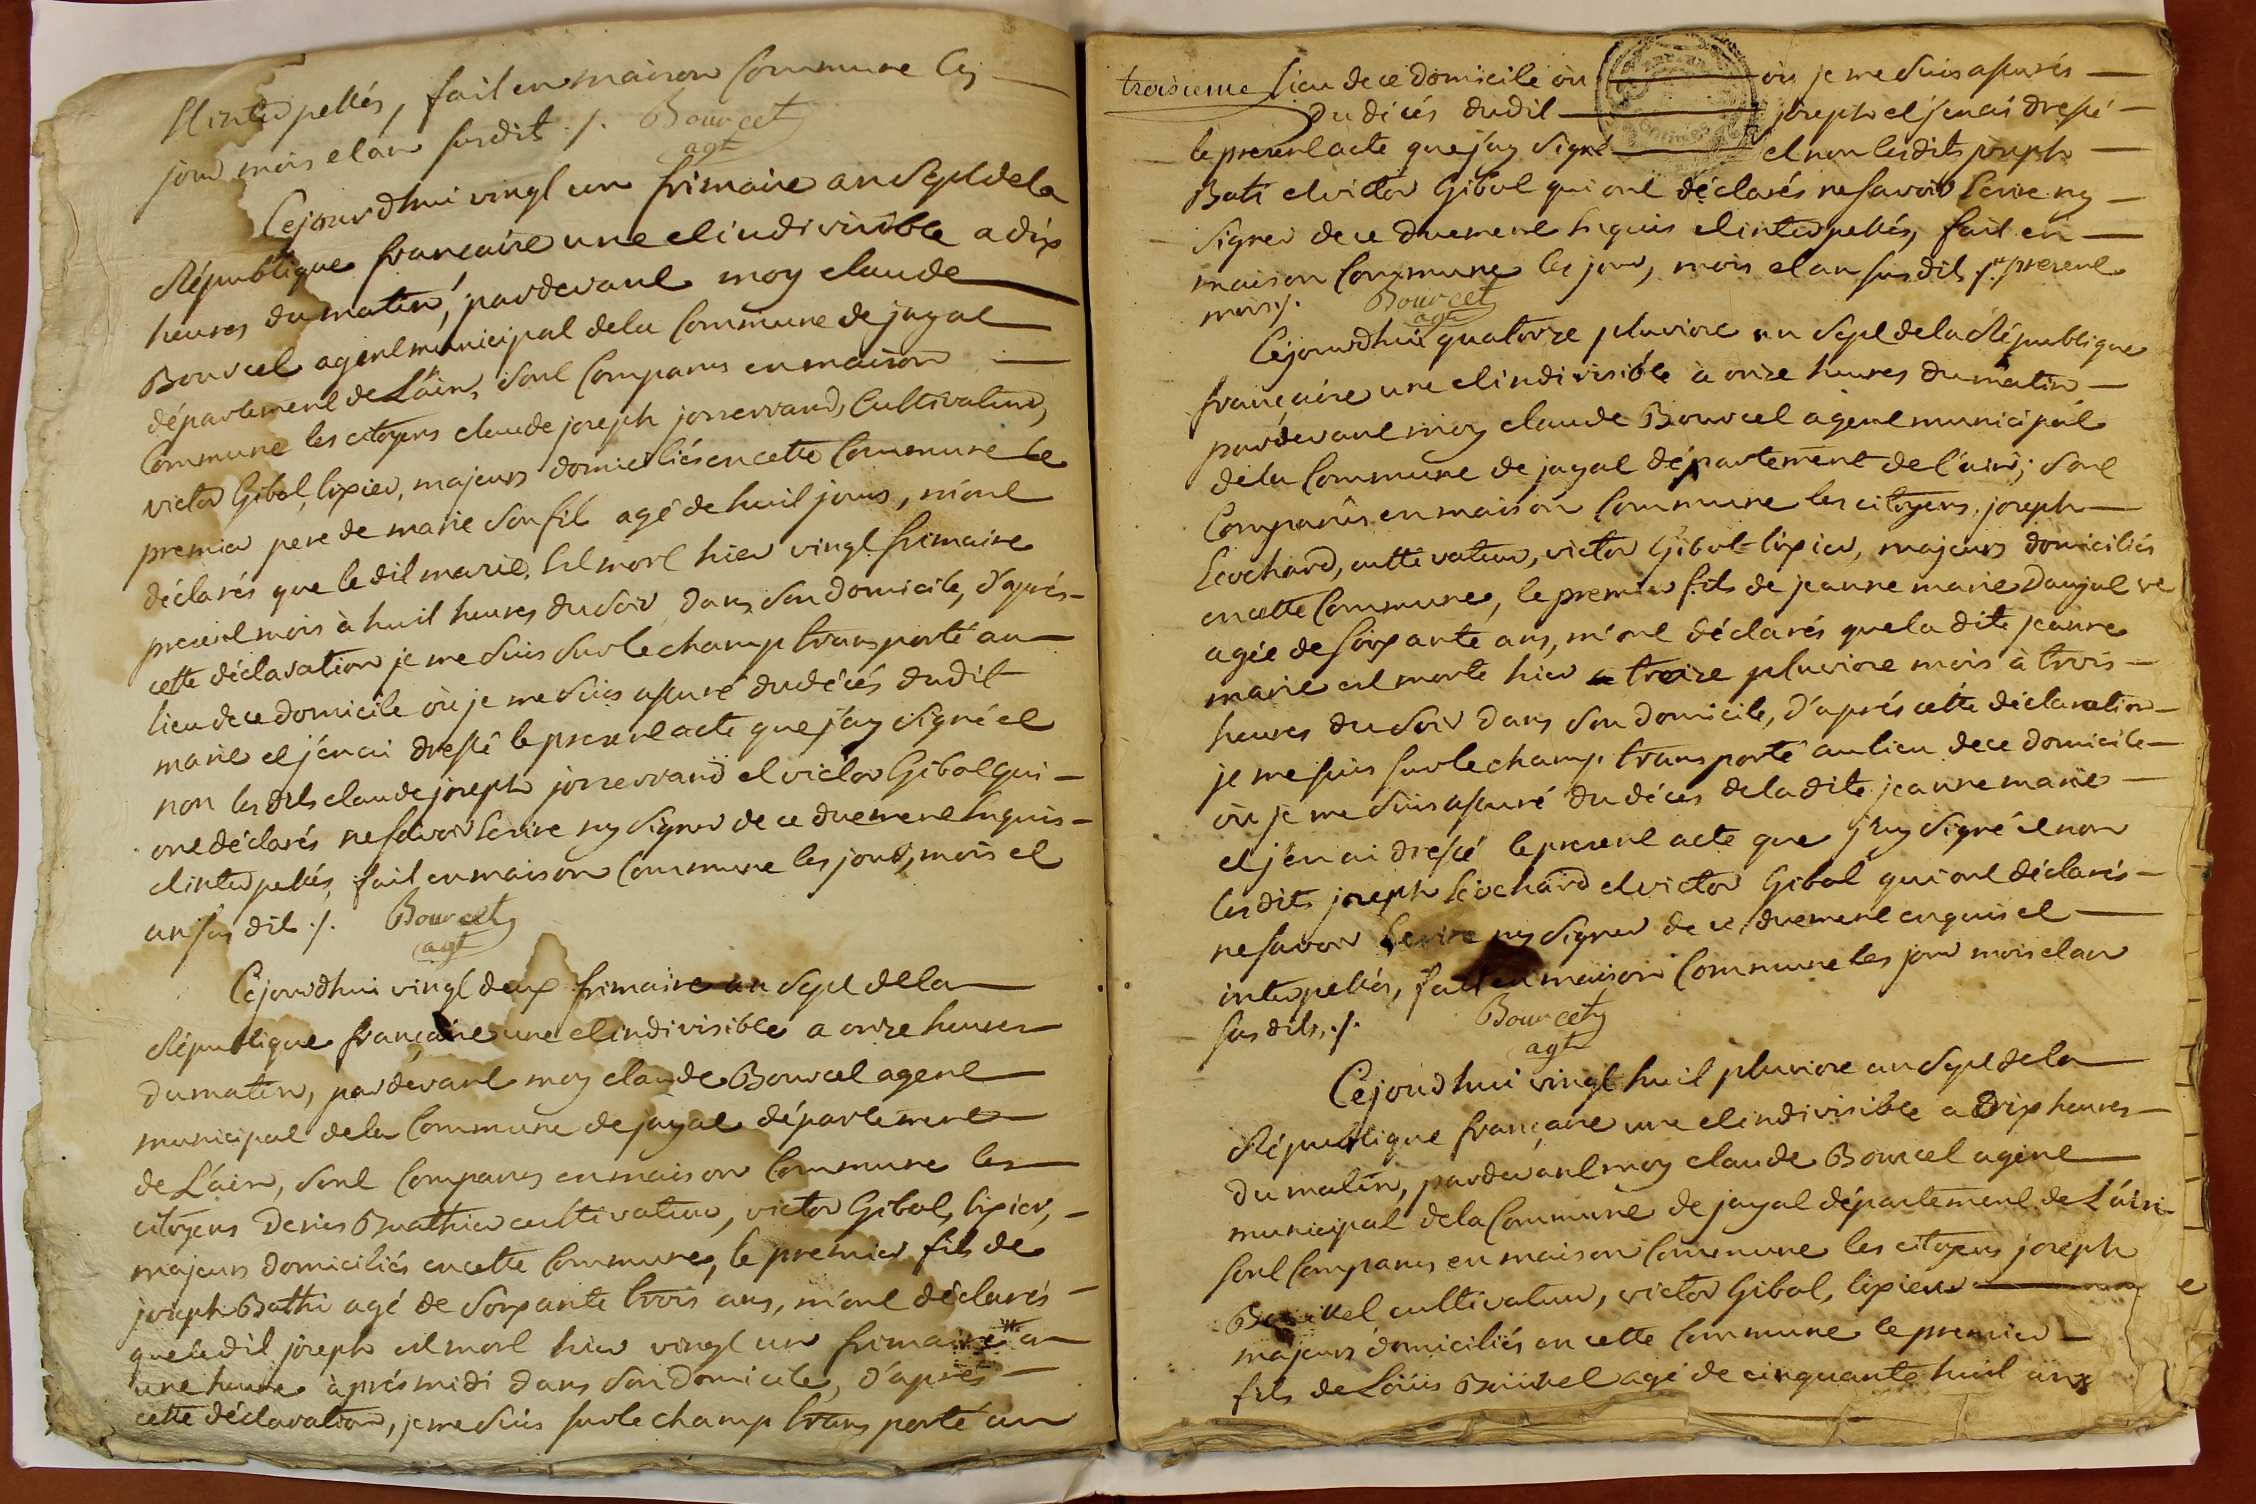 et interpellés, fait en maison Commune les
jour mois et an susdit ./. Bourcet
agt
Cejourdhui vingt un frimaire an sept dela
République francaise une et indivisible a dix
heures du matin, pardevant moy claude
Bourcet agent municipal dela Commune de jayat
département de L'ain, sont Comparus en maison
Commune les citoyens claude joseph josserrand, Cultivateur,
victor Gibol, tixier, majeurs domiciliés en cette Commune le
premier pere de marie son fils agé de huit jours, m'ont
déclarés que le dit marie est mort hier vingt frimaire
present mois à huit heures du soir dans son domicile, d'aprés
cette déclaration je me suis sur le champ transporté au
lieu de ce domicile où je me suis assuré du décés dudit
marie et j'en ai dressé le present acte que j'ay signé et
non les dits claude joseph josserrand et victor Gibol qui
ont déclarés ne savoir Ecrire ny signer de ce duement Enquis
et interpellés, fait en maison Commune les jour, mois et
an sus dit ./. Bourcet
agt
Cejourdhui vingt deux frimaire an sept dela
République française une et indivisible a onze heures
du matin, pardevant moy claude Bourcet agent
municipal dela Commune de jayat département
de L'ain, sont Comparus en maison Commune les
citoyens Denis Buathier cultivateur, victor Gibol, tixier,
majeurs domiciliés en cette Commune, le premier fils de
joseph Bathi agé de soixante trois ans, m'ont déclarés
que ledit joseph est mort hier vingt un frimaire an
une heure aprés midi dans son domicile, d'aprés
cette déclaration, je me suis sur le champ transporté au
troisieme
lieu de ce domicile où où je me suis assurés
du décés dudit joseph et j'en ai dressé
le present acte que j'ay signé et non les dits joseph
Bati et victor Gibol qui ont déclarés ne savoir Ecrire ny
signer de ce duement Enquis et interpellés, fait en
maison Commune les jour, mois et an susdit ./. present
mois ./. Bourcet
agt
Cejourdhui quatorze pluviose an sept dela République
française une et indivisible à onze heures du matin
pardevant moy claude Bourcet agent municipal
dela Commune de jayat département de l'ain; sont
Comparus en maison Commune les citoyens joseph
cultivateur, victor Gibol tixier, majeurs domiciliés
en cette Commune, le premier fils de jeanne marie Daujat ve
agée de soixante ans, m'ont déclarés que la dite jeanne
marie est morte hier treize pluviose mois à trois
heures du soir dans son domicile, d'aprés cette déclaration
je me suis sur le champ transporté au lieu de ce domicile
où je me suis assuré du déces dela dite jeanne marie
et j'en ai dressé le present acte que j'ay signé et non
les dits joseph et victor Gibol qui ont déclarés
ne savoir Ecrire ny signer de ce duement enquis et
interpellés, fait en maison Commune les jour mois et an
susdits ./. Bourcet
agt
Cejourdhui vingt huit pluviose an sept dela
République française une et indivisible a Dix heures
du matin, pardevant moy claude Bourcet agent
municipal dela Commune de jayat département de L'ain
sont Comparus en maison Commune les citoyens joseph
cultivateur, victor Gibol, tixier
majeurs domiciliés en cette Commune le premier
fils de Loüis agé de cinquante huit ans